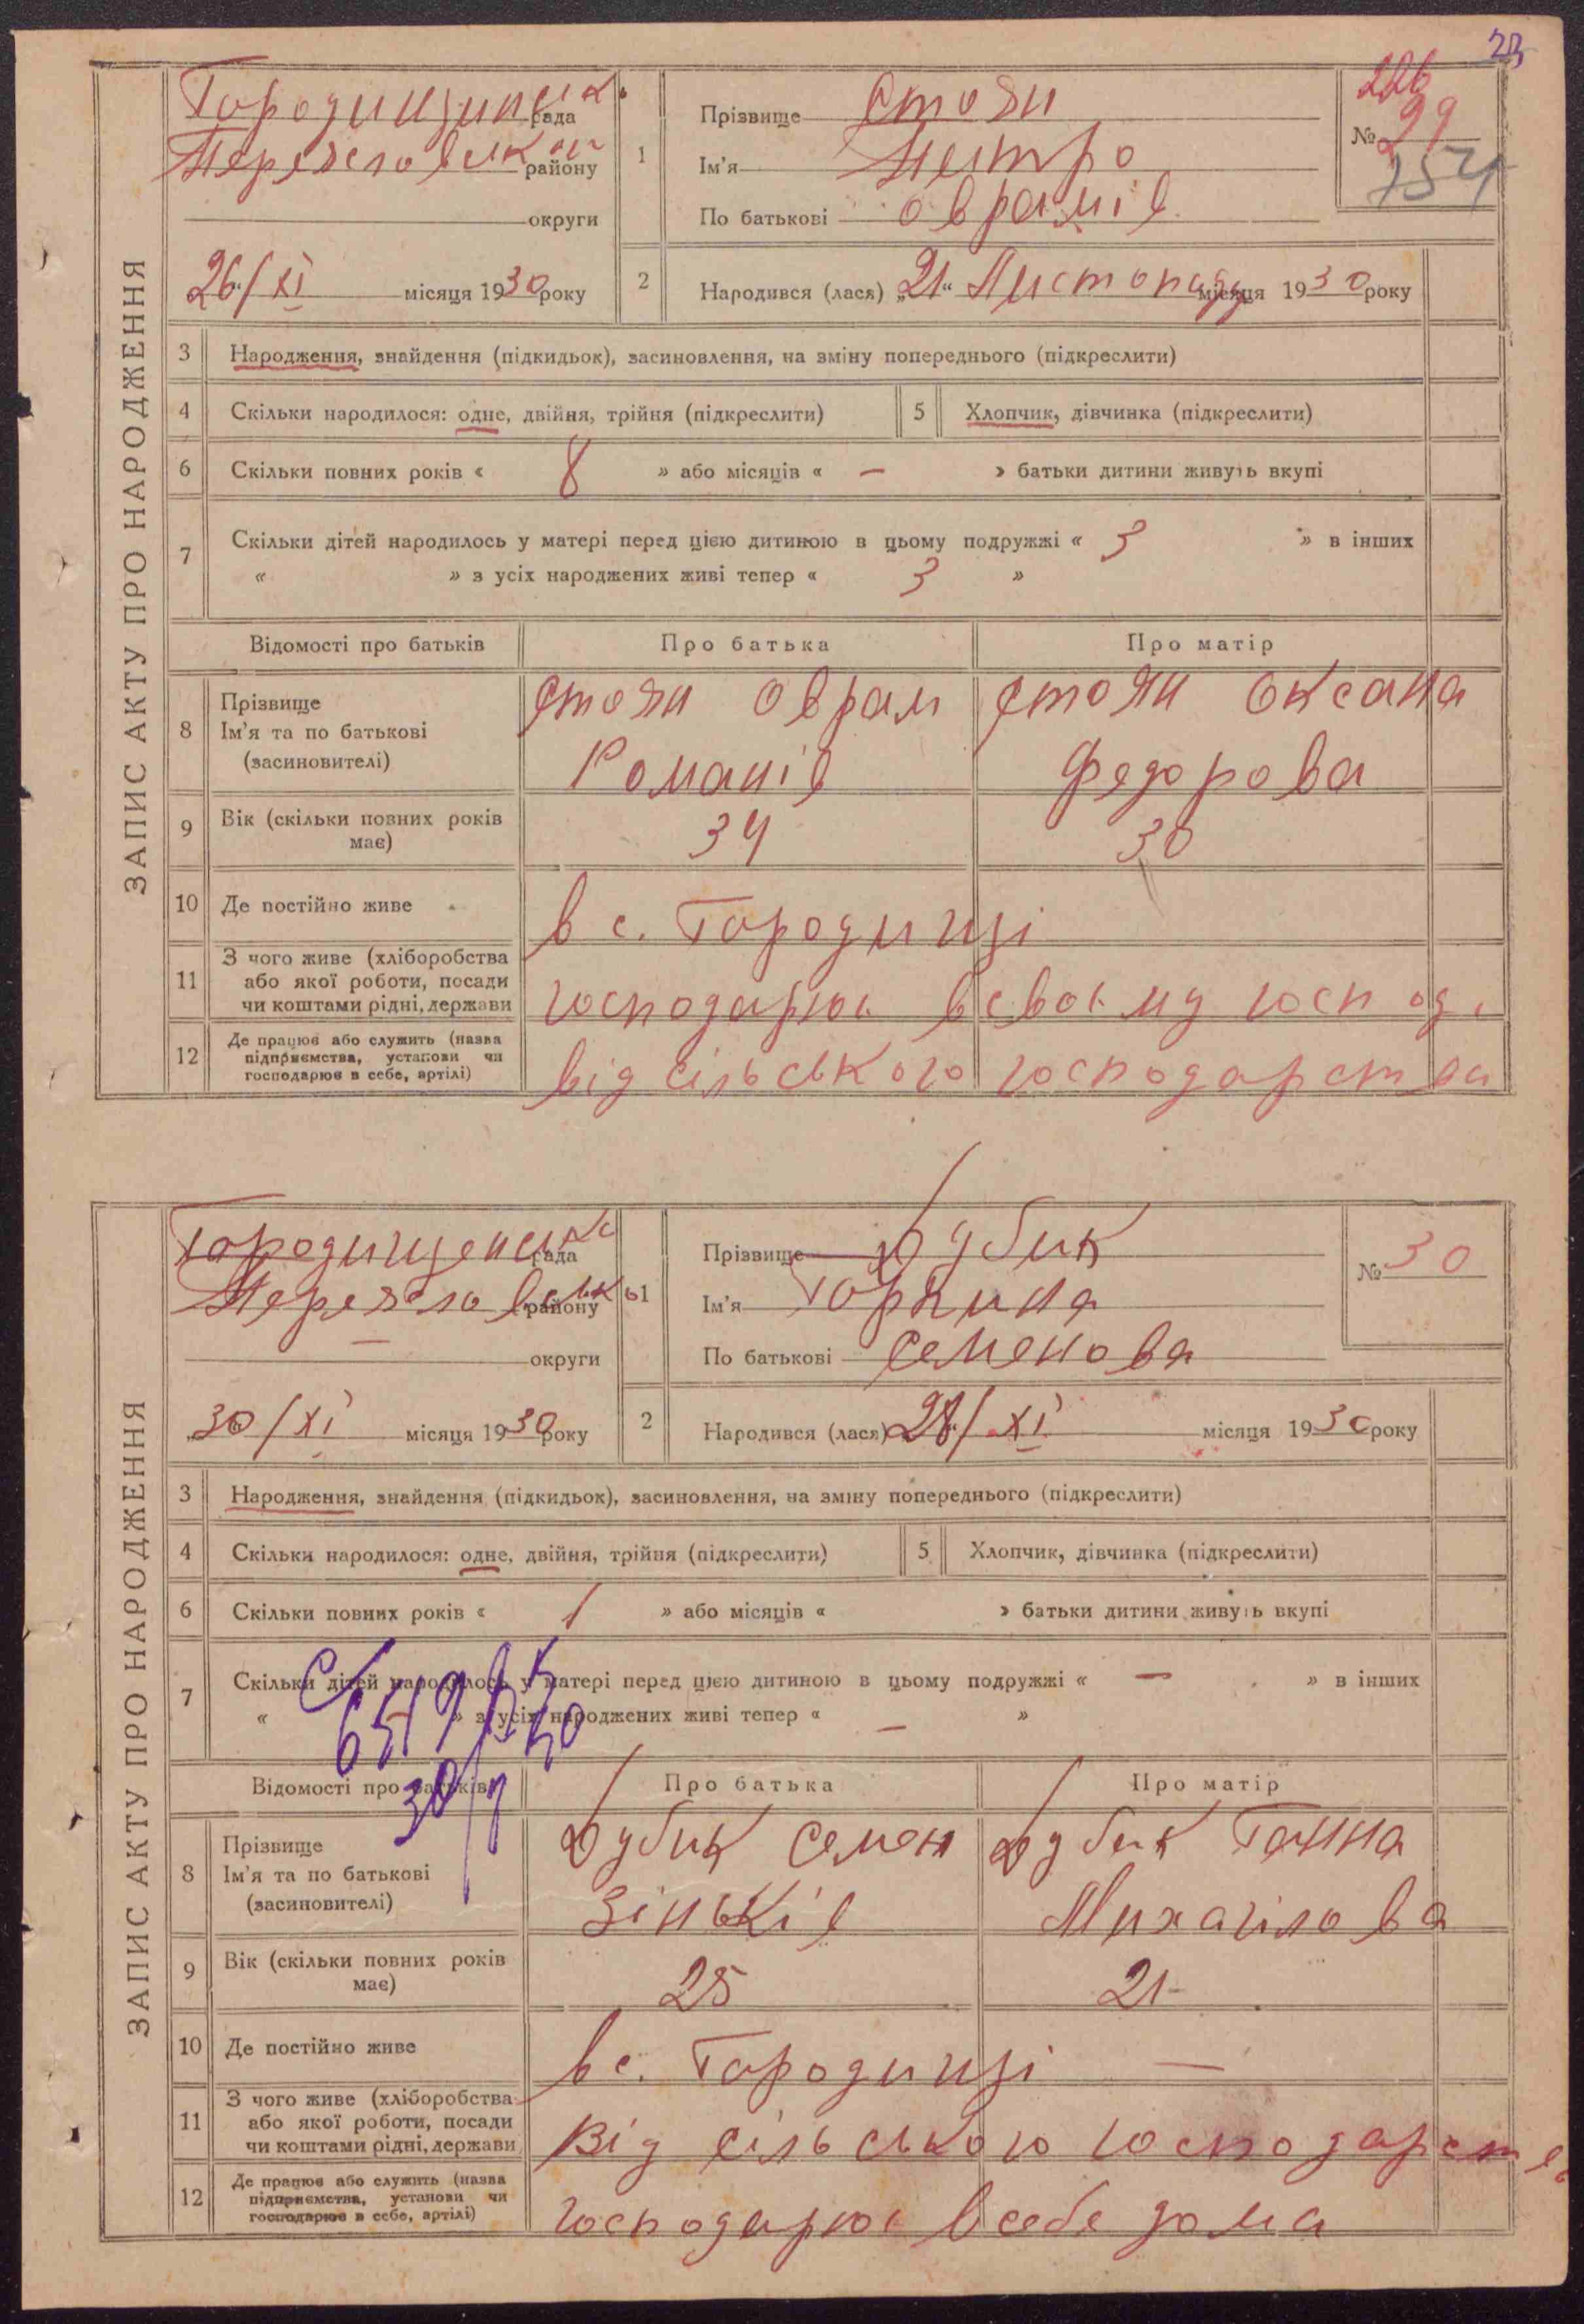 23
ЗАПИС АКТУ ПРО НАРОДЖЕННЯ
Городищинська рада
Переяславськ району
округи
26/XI місяця 1930 року
1
Прізвище Стоян
Ім'я Петро
По батькові Оврамів
226
№ 29
154
2 Народився (лася) „21“ Листопаду місяця 1930 року
3 Народження, знайдення (підкидьок), засиновлення, на зміну попереднього (підкреслити)
4 Скільки народилося: одне, двійня, трійня (підкреслити) 5 Хлопчик, дівчинка (підкреслити)
6 Скільки повних років « 8 » або місяців « — » батьки дитини живуть вкупі
7 Скільки дітей народилось у матері перед цією дитиною в цьому подружжі « 3 » в інших
« » з усіх народжених живі тепер « 3 »
Відомості про батьків Про батька Про матір
8 Прізвище Ім'я та по батькові (засиновителі)
Стоян Оврам Стоян Оксана
Романів Федорова
9 Вік (скільки повних років має) 34 30
10 Де постійно живе в с. Городищі
11 З чого живе (хліборобства або якої роботи, посади чи коштами рідні, держави
господарює в своєму господ.
12 Де працює або служить (назва підприємства, установи чи господарює в себе, артілі)
від сільського господарства
ЗАПИС АКТУ ПРО НАРОДЖЕННЯ
Городищенська рада
Переяславськ району
округи
30/XI місяця 1930 року
1
Прізвище Дубик
Ім'я Горпина
По батькові Семенова
№ 30
2 Народився (лася) 28/XI місяця 1930 року
3 Народження, знайдення (підкидьок), засиновлення, на зміну попереднього (підкреслити)
4 Скільки народилося: одне, двійня, трійня (підкреслити) 5 Хлопчик, дівчинка (підкреслити)
6 Скільки повних років « 1 » або місяців « » батьки дитини живуть вкупі
7 Скільки дітей народилось у матері перед цією дитиною в цьому подружжі « — » в інших
« » з усіх народжених живі тепер « — »
Відомості про батьків Про батька Про матір
8 Прізвище Ім'я та по батькові (засиновителі)
Дубик Семен Дубик Ганна
Зіньків Михайлова
9 Вік (скільки повних років має) 25 21
10 Де постійно живе в с. Городищі —
11 З чого живе (хліборобства або якої роботи, посади чи коштами рідні, держави
Від сільського господарств
12 Де працює або служить (назва підприємства, установи чи господарює в себе, артілі)
господарює в себе дома